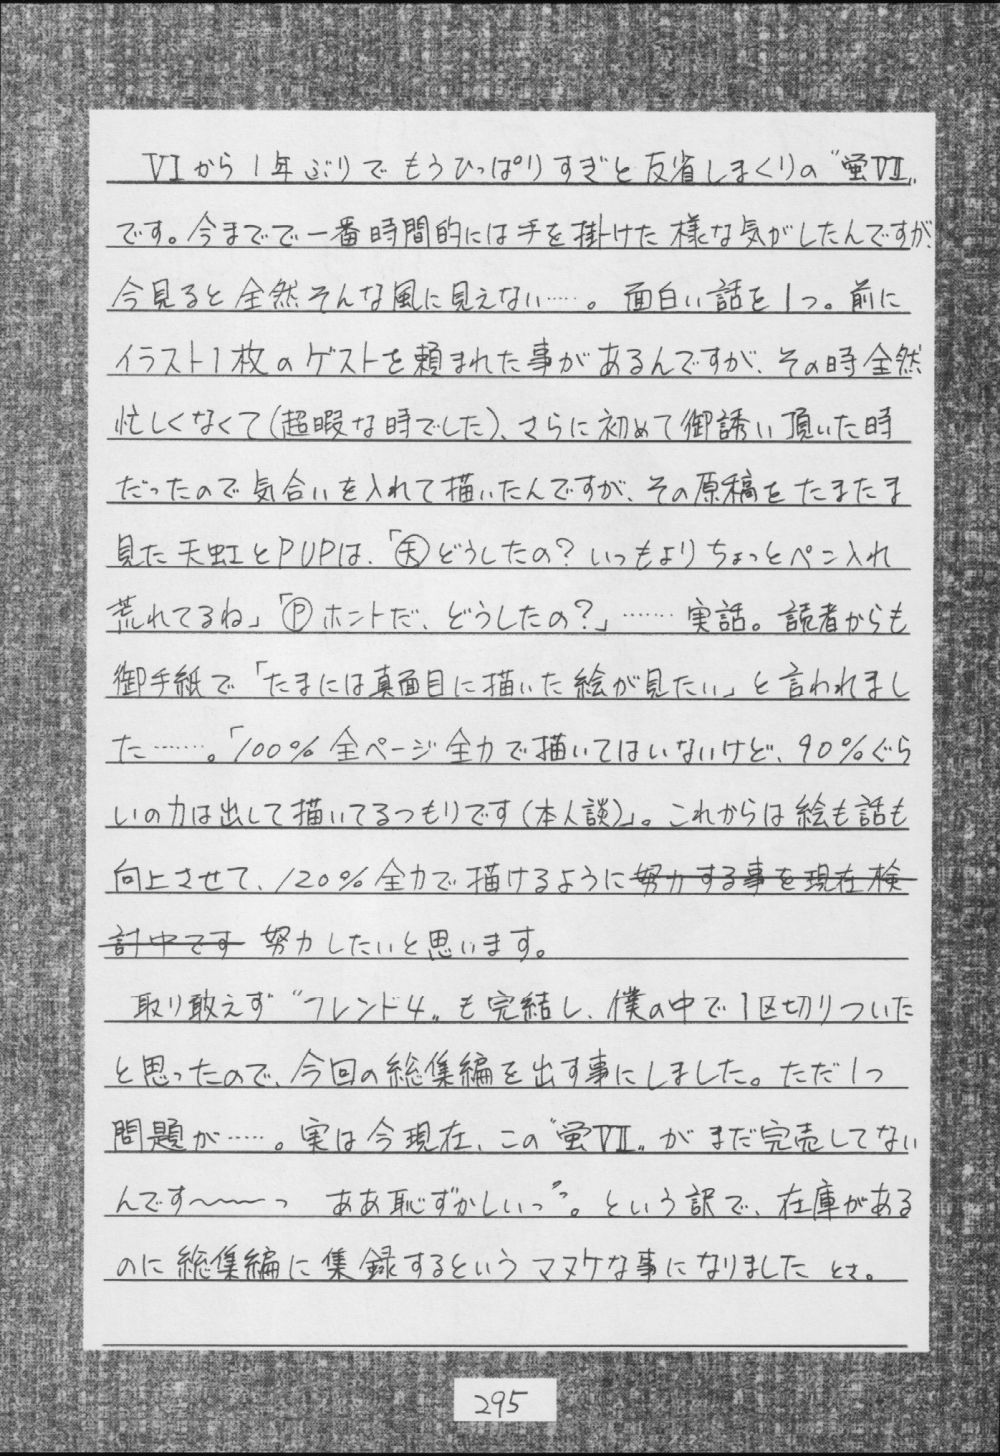 VIから1年ぶりでもうひっぱりすぎと反省しまくりの〝蛍VII〟
です。今までで一番時間的には手を掛けた様な気がしたんですが、
今見ると全然そんな風に見えない……。面白い話を1つ。前に
イラスト1枚のゲストを頼まれた事があるんですが、その時全然
忙しくなくて(超暇な時でした)、さらに初めて御誘い頂いた時
だったので気合いを入れて描いたんですが、その原稿をたまたま
見た天虹とPUPは、「㊝どうしたの?いつもよりちょっとペン入れ
荒れてるね」「Ⓟホントだ、どうしたの?」……実話。読者からも
御手紙で「たまには真面目に描いた絵が見たい」と言われまし
た……。「100%全ページ全力で描いてはいないけど、90%ぐら
いの力は出して描いてるつもりです(本人談)」。これからは絵も話も
向上させて、120%全力で描けるように努力する事を現在検
討中です 努力したいと思います。
取り敢えず〝フレンド4〟も完結し、僕の中で1区切りついた
と思ったので、今回の総集編を出す事にしました。ただ1つ
問題が……。実は今現在、この〝蛍VII〟がまだ完売してない
んです〜〜〜っ ああ恥ずかしいっ〝。という訳で、在庫がある
のに総集編に集録するというマヌケな事になりましたとさ。
295